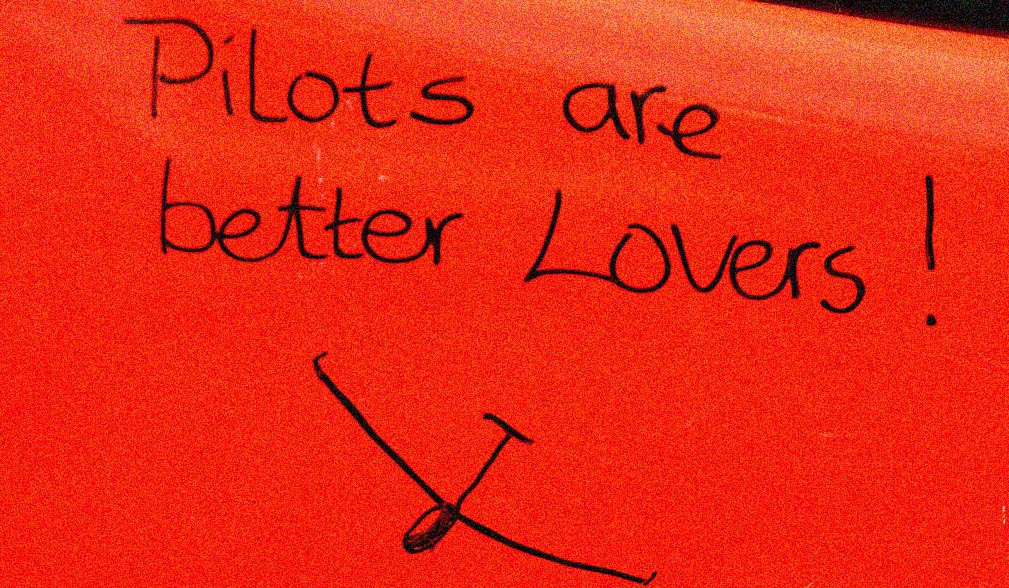 Pilots are
better Lovers!